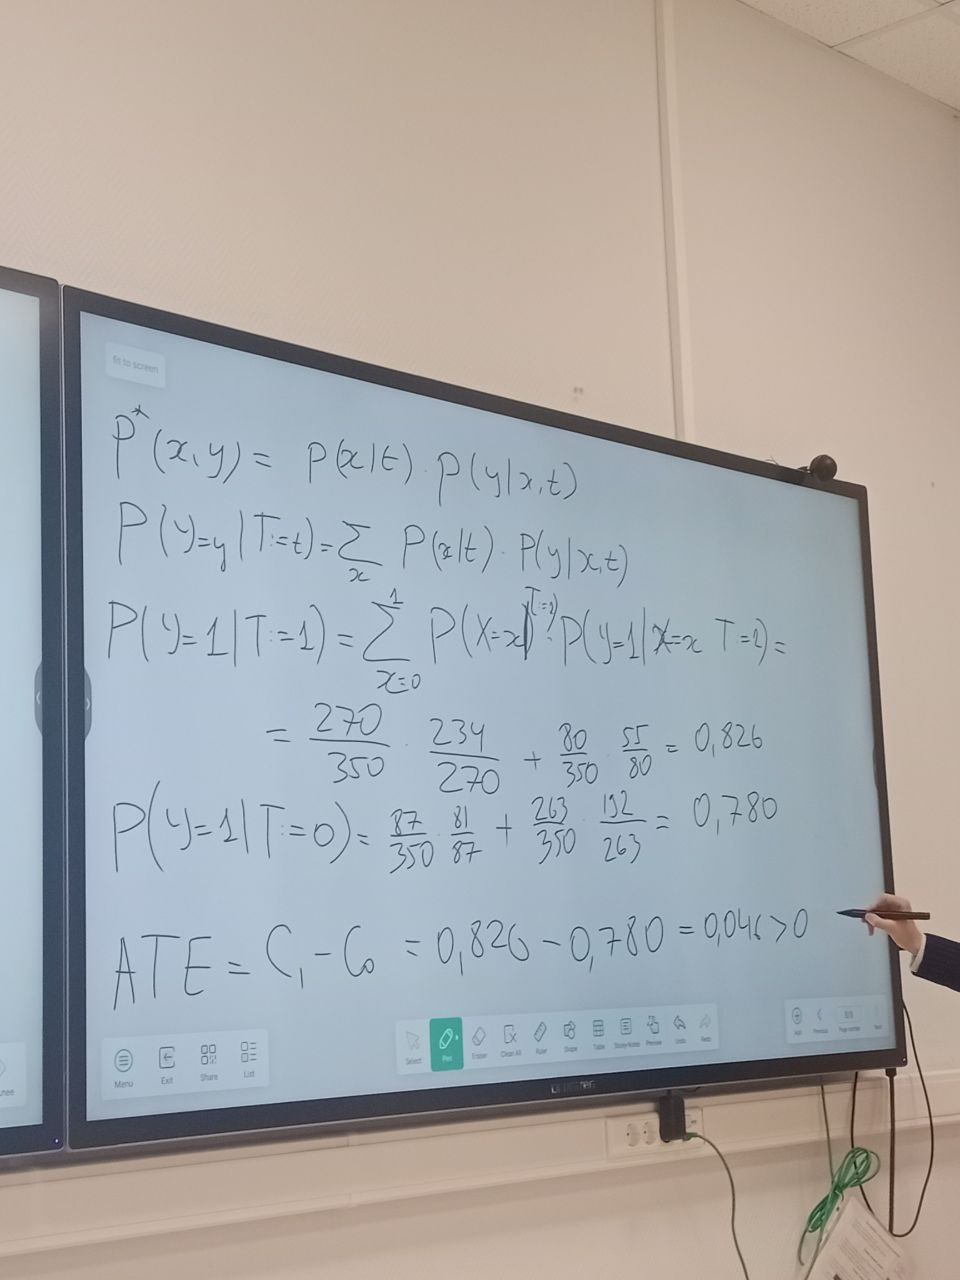 fit to screen
P*(x,y) = P(x|t) · P(y|x,t)
P(Y=y|T:=t) = ∑ₓ P(x|t) · P(y|x,t)
P(Y=1|T:=1) = ∑ₓ₌₀¹ P(X=x|T:=1) · P(Y=1|X=x T=1) =
= 270/350 · 234/270 + 80/350 · 55/80 = 0,826
P(Y=1|T:=0) = 87/350 · 81/87 + 263/350 · 192/263 = 0,780
ATE = C₁ - C₀ = 0,826 - 0,780 = 0,046 > 0
Menu Exit Share List Select Pen Eraser Clean All Ruler Shape Table Sticky Notes Preview Undo Redo Add Previous Page number Next